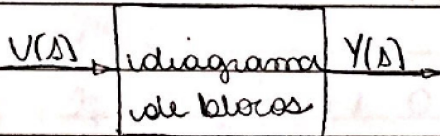 U(s) diagrama Y(s)
de blocos